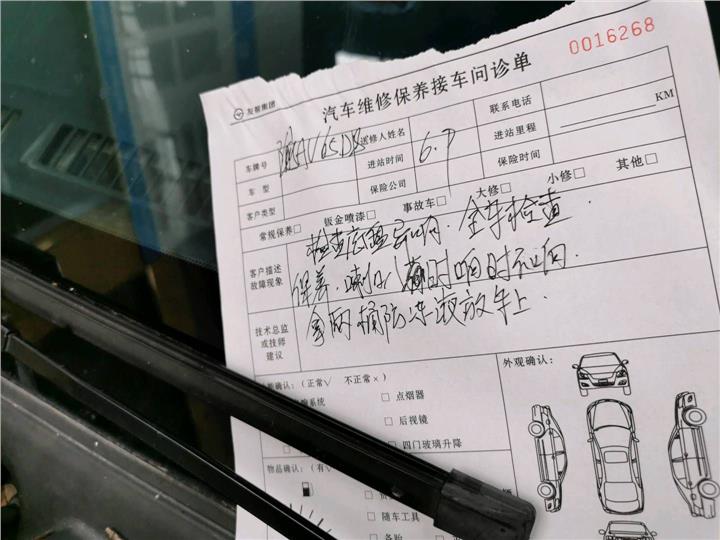 0016268
友塱集团
汽车维修保养接车问诊单
车牌号 AV65D8 送修人姓名 联系电话
车型 进站时间 6.7 进站里程 KM
客户类型 保险公司 保险时间
常规保养□ 钣金喷漆□ 事故车□ 大修□ 小修□ 其他□
客户描述
故障现象
检查底盘 全车检查.
保养. 喇叭 时响时不响
拿两桶防冻液放车上.
技术总监
或技师
建议
确认：(正常√ 不正常×) 外观确认：
系统 □ 点烟器
□ 后视镜
□ 四门玻璃升降
物品确认：(有√
□ 随车工具
□ 备胎